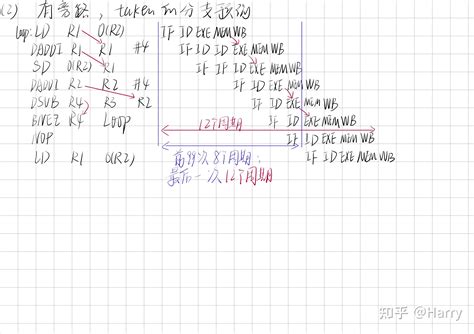 (2) 有旁路，taken的分支预测
Loop: LD R1 0(R2) IF ID EXE MEM WB
DADDI R1 R1 #4 IF ID ID EXE MEM WB
SD 0(R2) R1 IF IF ID EXE MEM WB
DADDI R2 R2 #4 IF ID EXE MEM WB
DSUB R4 R3 R2 IF ID EXE MEM WB
BNEZ R4 Loop IF ID EXE MEM WB
12个周期
NOP IF ID EXE MEM WB
LD R1 0(R2) IF ID EXE MEM WB
前99次8个周期；
最后一次12个周期
知乎 @Harry